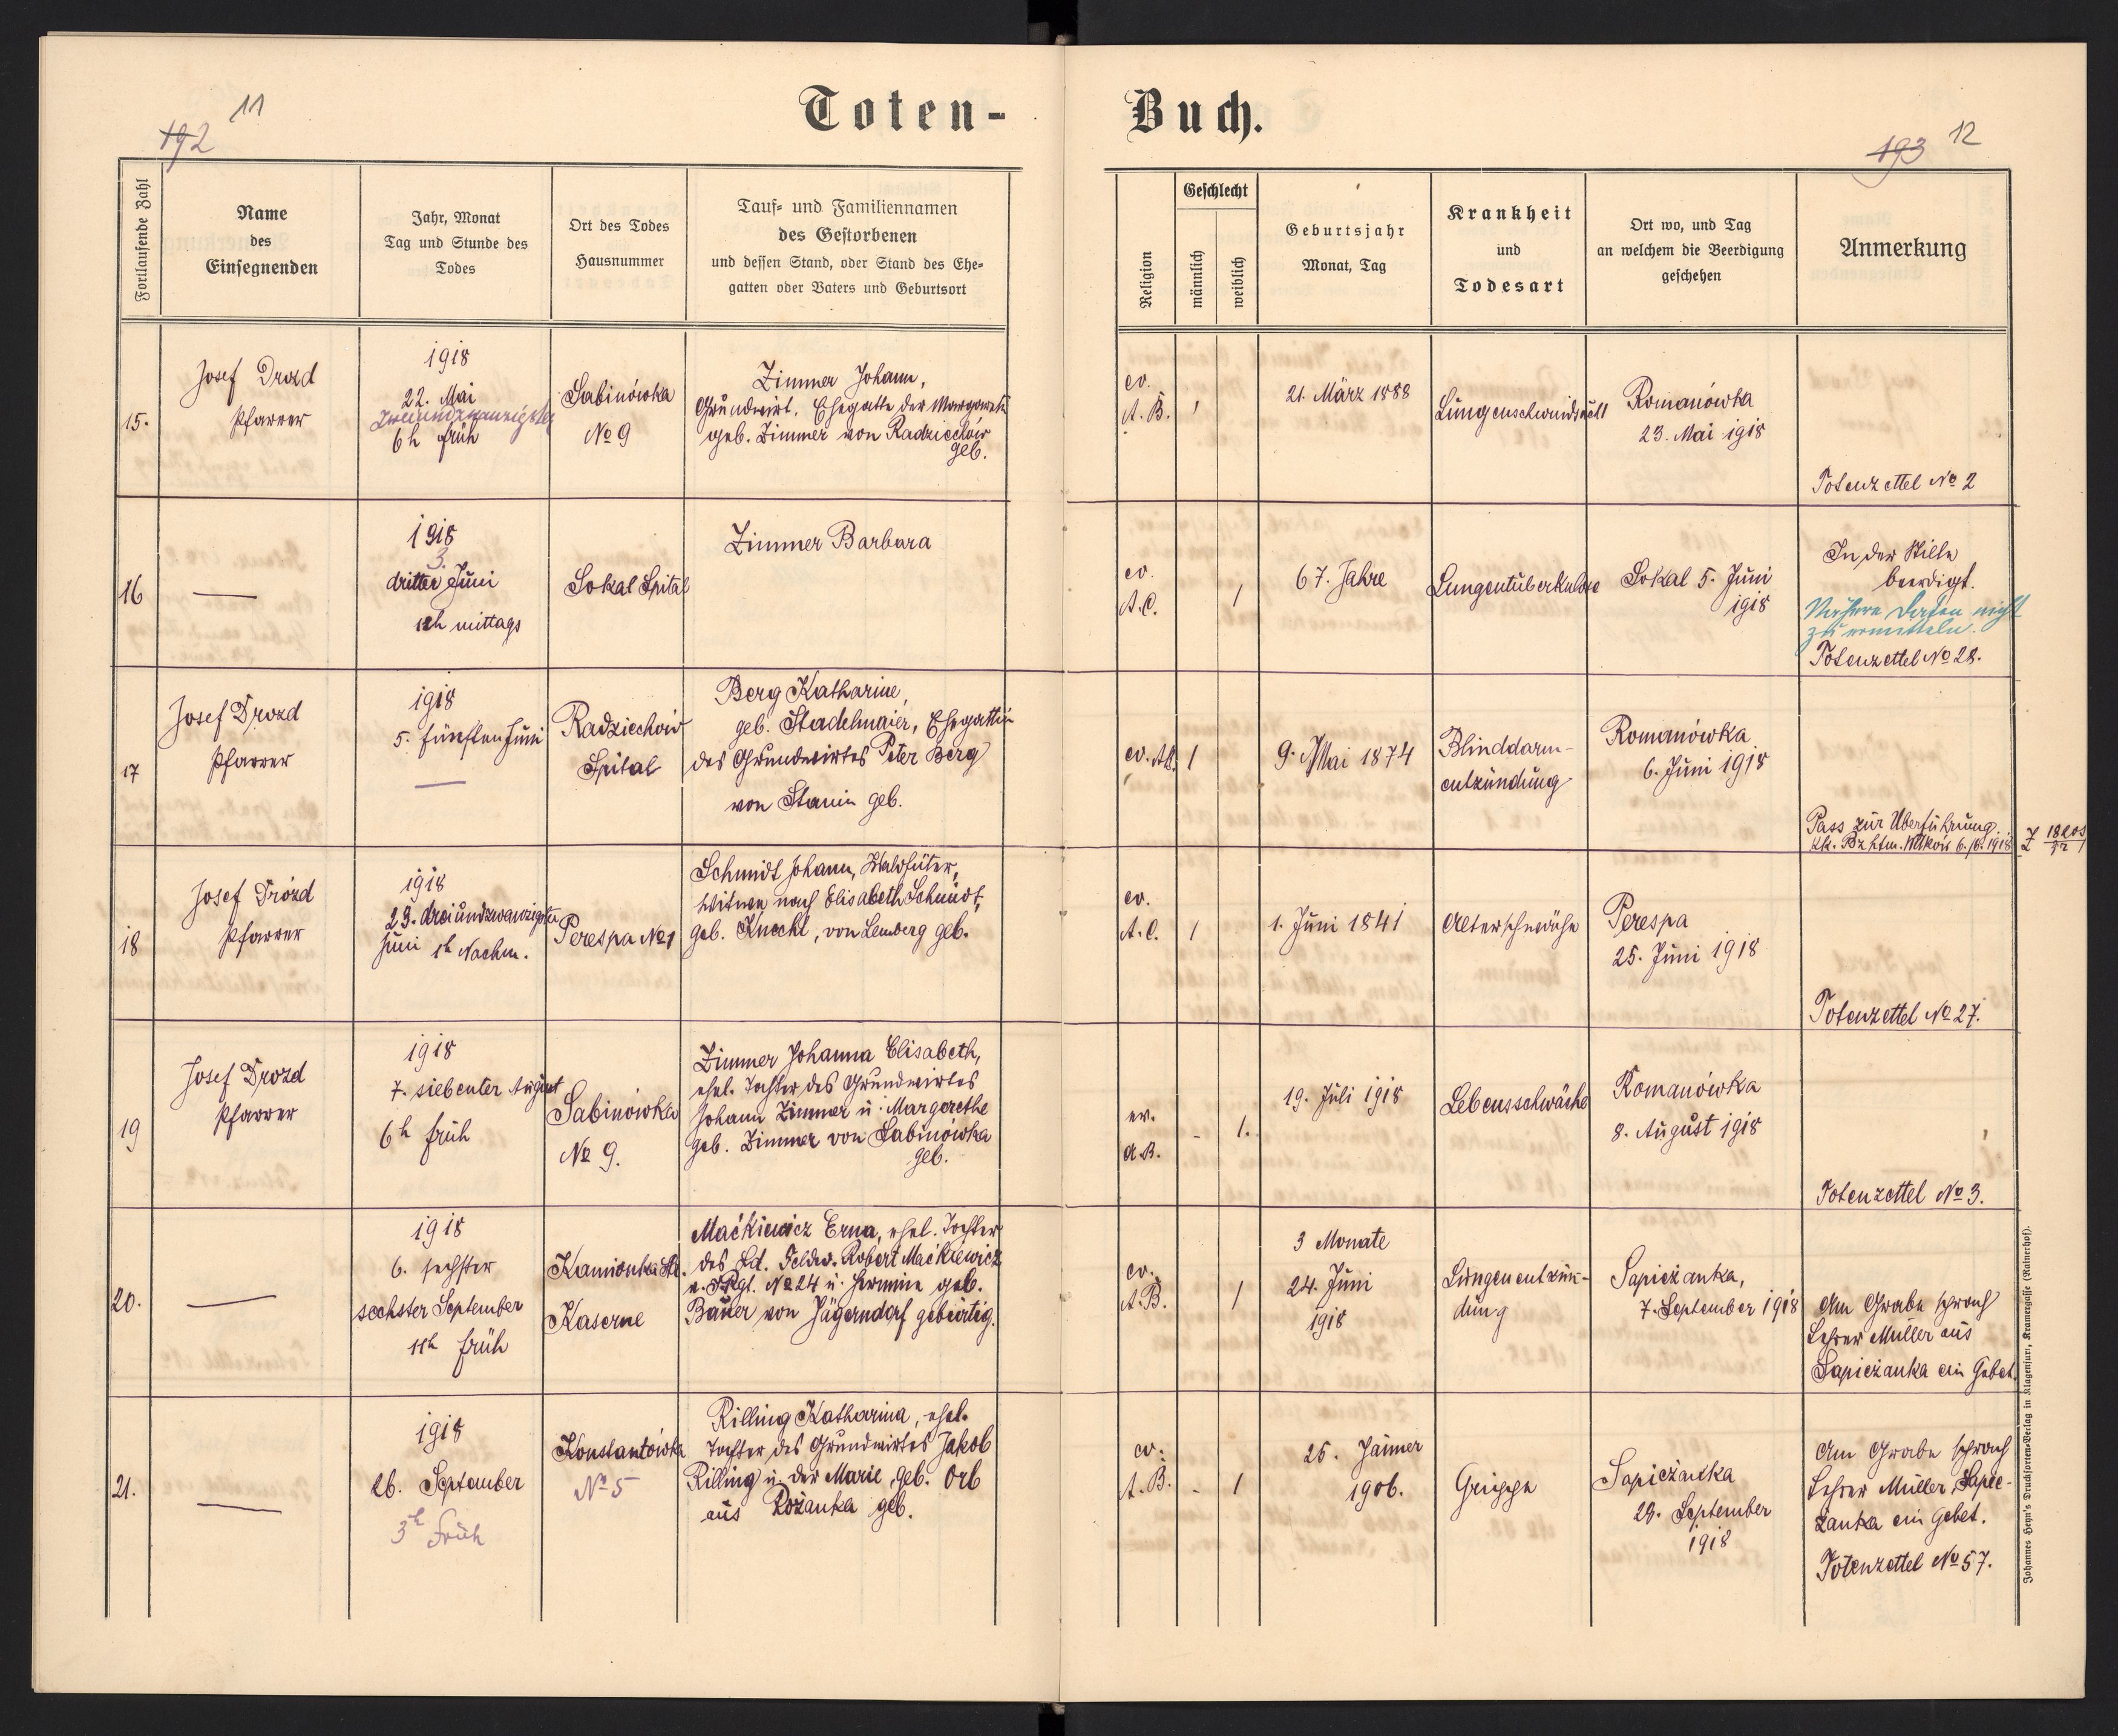 11
192
Toten-
Buch.
12
193
Fortlaufende Zahl
Name
des
Einsegnenden
Jahr, Monat
Tag und Stunde des
Todes
Ort des Todes
Hausnummer
Tauf- und Familiennamen
des Gestorbenen
und dessen Stand, oder Stand des Ehe-
gatten oder Vaters und Geburtsort
Religion
Geschlecht
männlich
weiblich
Geburtsjahr
Monat, Tag
Krankheit
und
Todesart
Ort wo, und Tag
an welchem die Beerdigung
geschehen
Anmerkung
15.
Josef Drozd
Pfarrer
1918
22. Mai
zweiundzwanzigster
6h früh
Sabinówka
No 9
Zimmer Johann,
Grundwirt, Ehegatte der Margarete
geb. Zimmer von Radziechów
geb.
ev.
A. B.
1
21. März 1888
Lungenschwindsucht
Romanówka
23. Mai 1918
Totenzettel No 2
16
—
1918
3.
dritter Juni
12h mittags
Sokal Spital
Zimmer Barbara
ev.
A.C.
1
67. Jahre
Lungentuberkulose
Sokal 5. Juni
1918
In der Stille
beerdigt.
Nähere Daten nicht
zu ermitteln.
Totenzettel No 28.
17
Josef Drozd
Pfarrer
1918
5. fünften Juni
—
Radziechów
Spital
Berg Katharine,
geb. Stadelmaier, Ehegattin
des Grundwirtes Peter Berg
von Stanin geb.
ev. AB.
1
9. Mai 1874
Blinddarm-
entzündung
Romanówka
6. Juni 1918
Pass zur Überführung.
6./6. 1918
18
Josef Drozd
Pfarrer
1918
23. dreiundzwanzigster
Juni 1h Nachm.
Perespa No 1
Schmidt Johann, Waldhüter,
Witwer nach Elisabeth Schmidt,
geb. Knecht, von Lemberg geb.
ev.
A.C.
1
1. Juni 1841
Altersschwäche
Perespa
25. Juni 1918
Totenzettel No 27.
19
Josef Drozd
Pfarrer
1918
7. siebenter August
6h früh
Sabinówka
No 9.
Zimmer Johanna Elisabeth,
ehel. Tochter des Grundwirtes
Johann Zimmer u. Margarethe
geb. Zimmer von Sabinówka
geb.
ev.
A.B.
-
1.
19. Juli 1918
Lebensschwäche
Romanówka
8. August 1918
Totenzettel No 3.
20.
—
1918
6. sechster
sechster September
11h früh
Kamionka Str.
Kaserne
Mackiewicz Erna, ehel. Tochter
des Ld. Feldw. Robert Mackiewicz
No 24 u. Hermine geb.
Bauer von Jägerndorf gebürtig.
ev.
A.B.
1
3 Monate
24. Juni
1918
Lungenentzün-
dung
Sapieżanka,
7. September 1918
Am Grabe sprach
Lehrer Müller aus
Sapieżanka ein Gebet.
21.
—
1918
26. September
3h früh
Konstantówka
No 5
Rilling Katharina, ehel.
Tochter des Grundwirtes Jakob
Rilling u. der Marie, geb. Orb
aus Rożanka geb.
ev.
A.B.
-
1
25. Jänner
1906.
Grippe
Sapieżanka
28. September
1918
Am Grabe sprach
Lehrer Müller, Sapie-
żanka ein Gebet.
Totenzettel No 57.
Johannes Heyn's Drucksorten-Verlag in Klagenfurt, Kramergasse (Rainerhof).